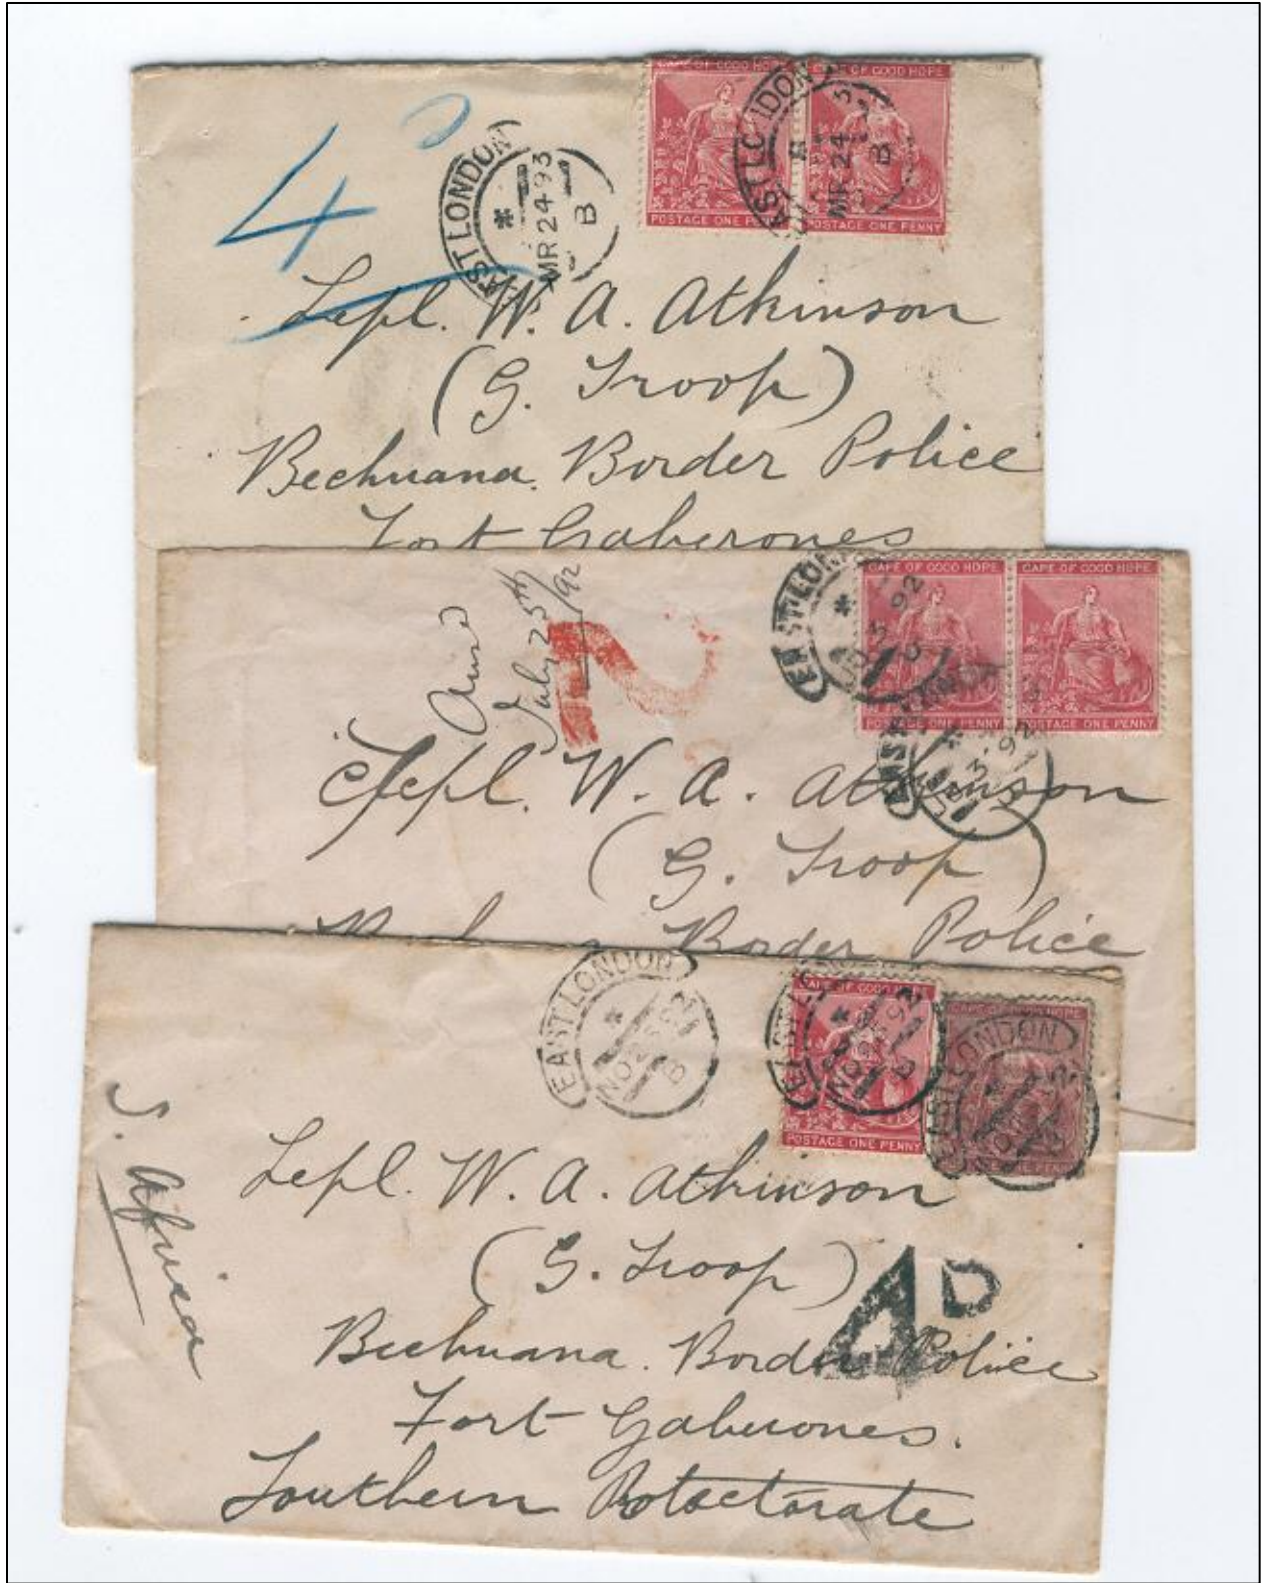 4
EAST LONDON
MR 24 93
B
CAPE OF GOOD HOPE
POSTAGE ONE PENNY
CAPE OF GOOD HOPE
POSTAGE ONE PENNY
EAST LONDON
MR 24
B
W. A. Atkinson
(G. Troop)
Bechuana. Border Police
Fort Gaberones
July 25th/92
2
EAST LONDON
92
CAPE OF GOOD HOPE
POSTAGE ONE PENNY
CAPE OF GOOD HOPE
POSTAGE ONE PENNY
92
W. A. Atkinson
(G. Troop)
Border Police
EAST LONDON
NO 2
B
CAPE OF GOOD HOPE
POSTAGE ONE PENNY
EAST LONDON
S. Africa
W. A. Atkinson
(G. Troop)
4D
Bechuana. Border Police
Fort Gaberones.
Southern Protectorate